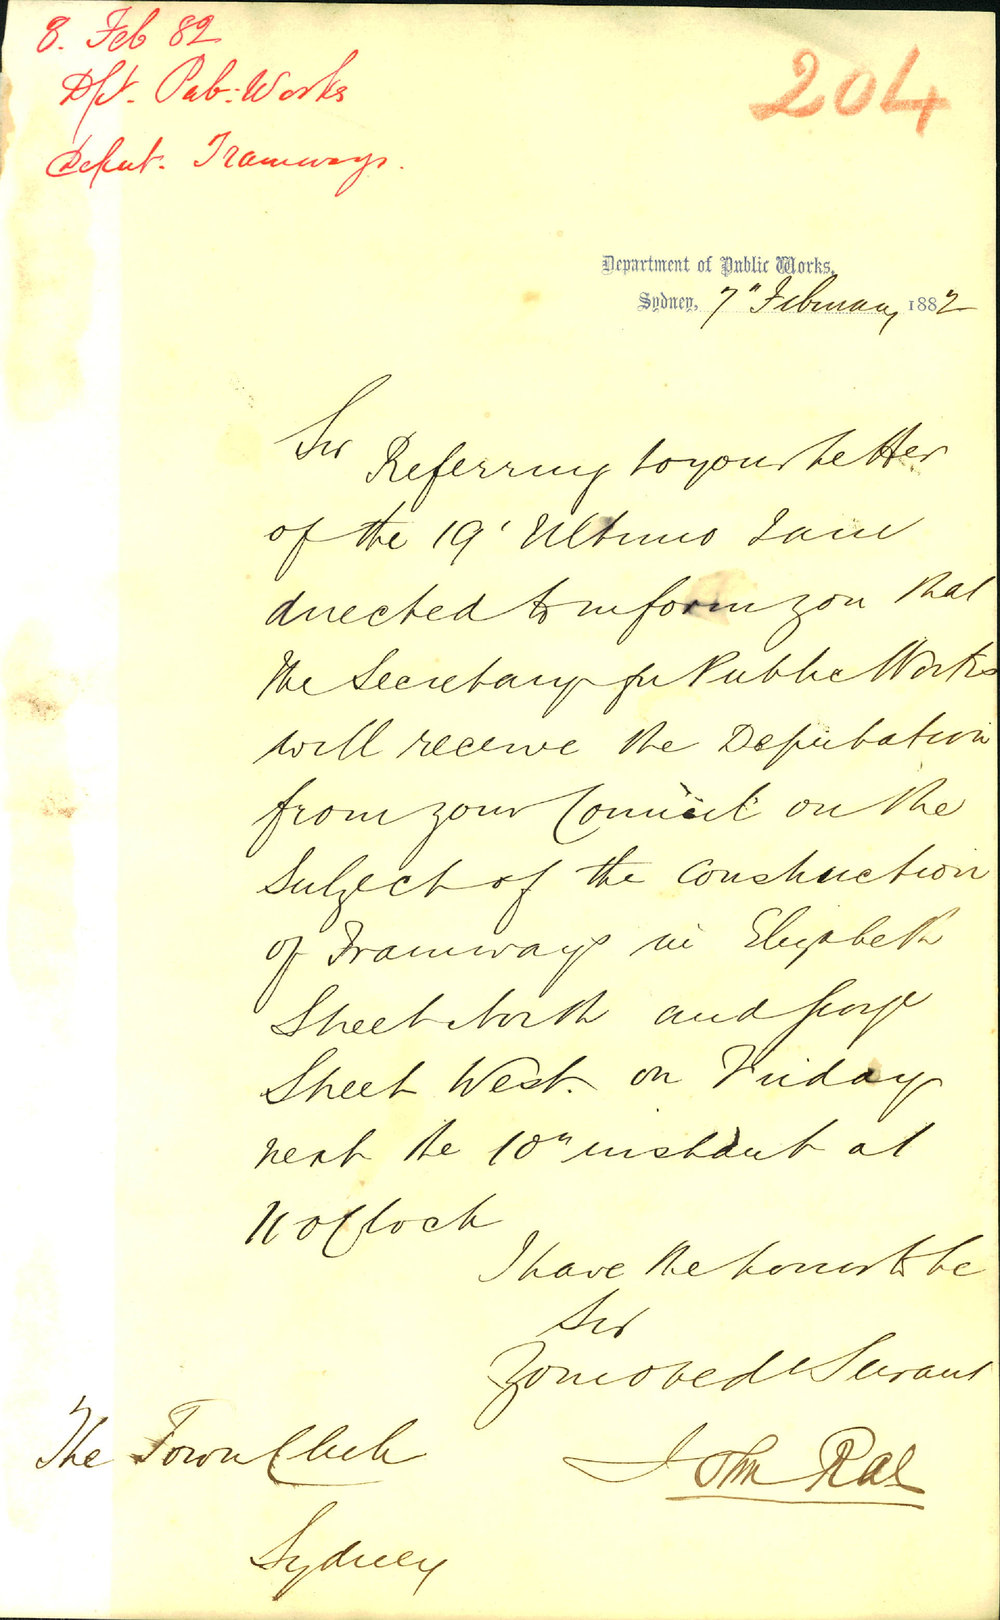 8. Feb 82
Dpt. Pub: Works
Deput. Tramways.
204
Department of Public Works,
Sydney, 7" February 1882
Sir
Referring to your letter
of the 19' Ultimo I am
directed to inform you that
the Secretary for Public Works
will receive the Deputation
from your Council on the
Subject of the Construction
of Tramways in Elizabeth
Street North and George
Street West. on Friday
next the 10th instant at
11 oClock
I have the honor to be
Sir
Your obedt Servant
John Rae
The Town Clerk
Sydney